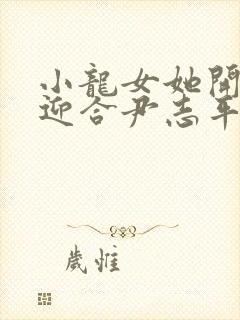 小龍女她開
迎合尹志平
歲惟